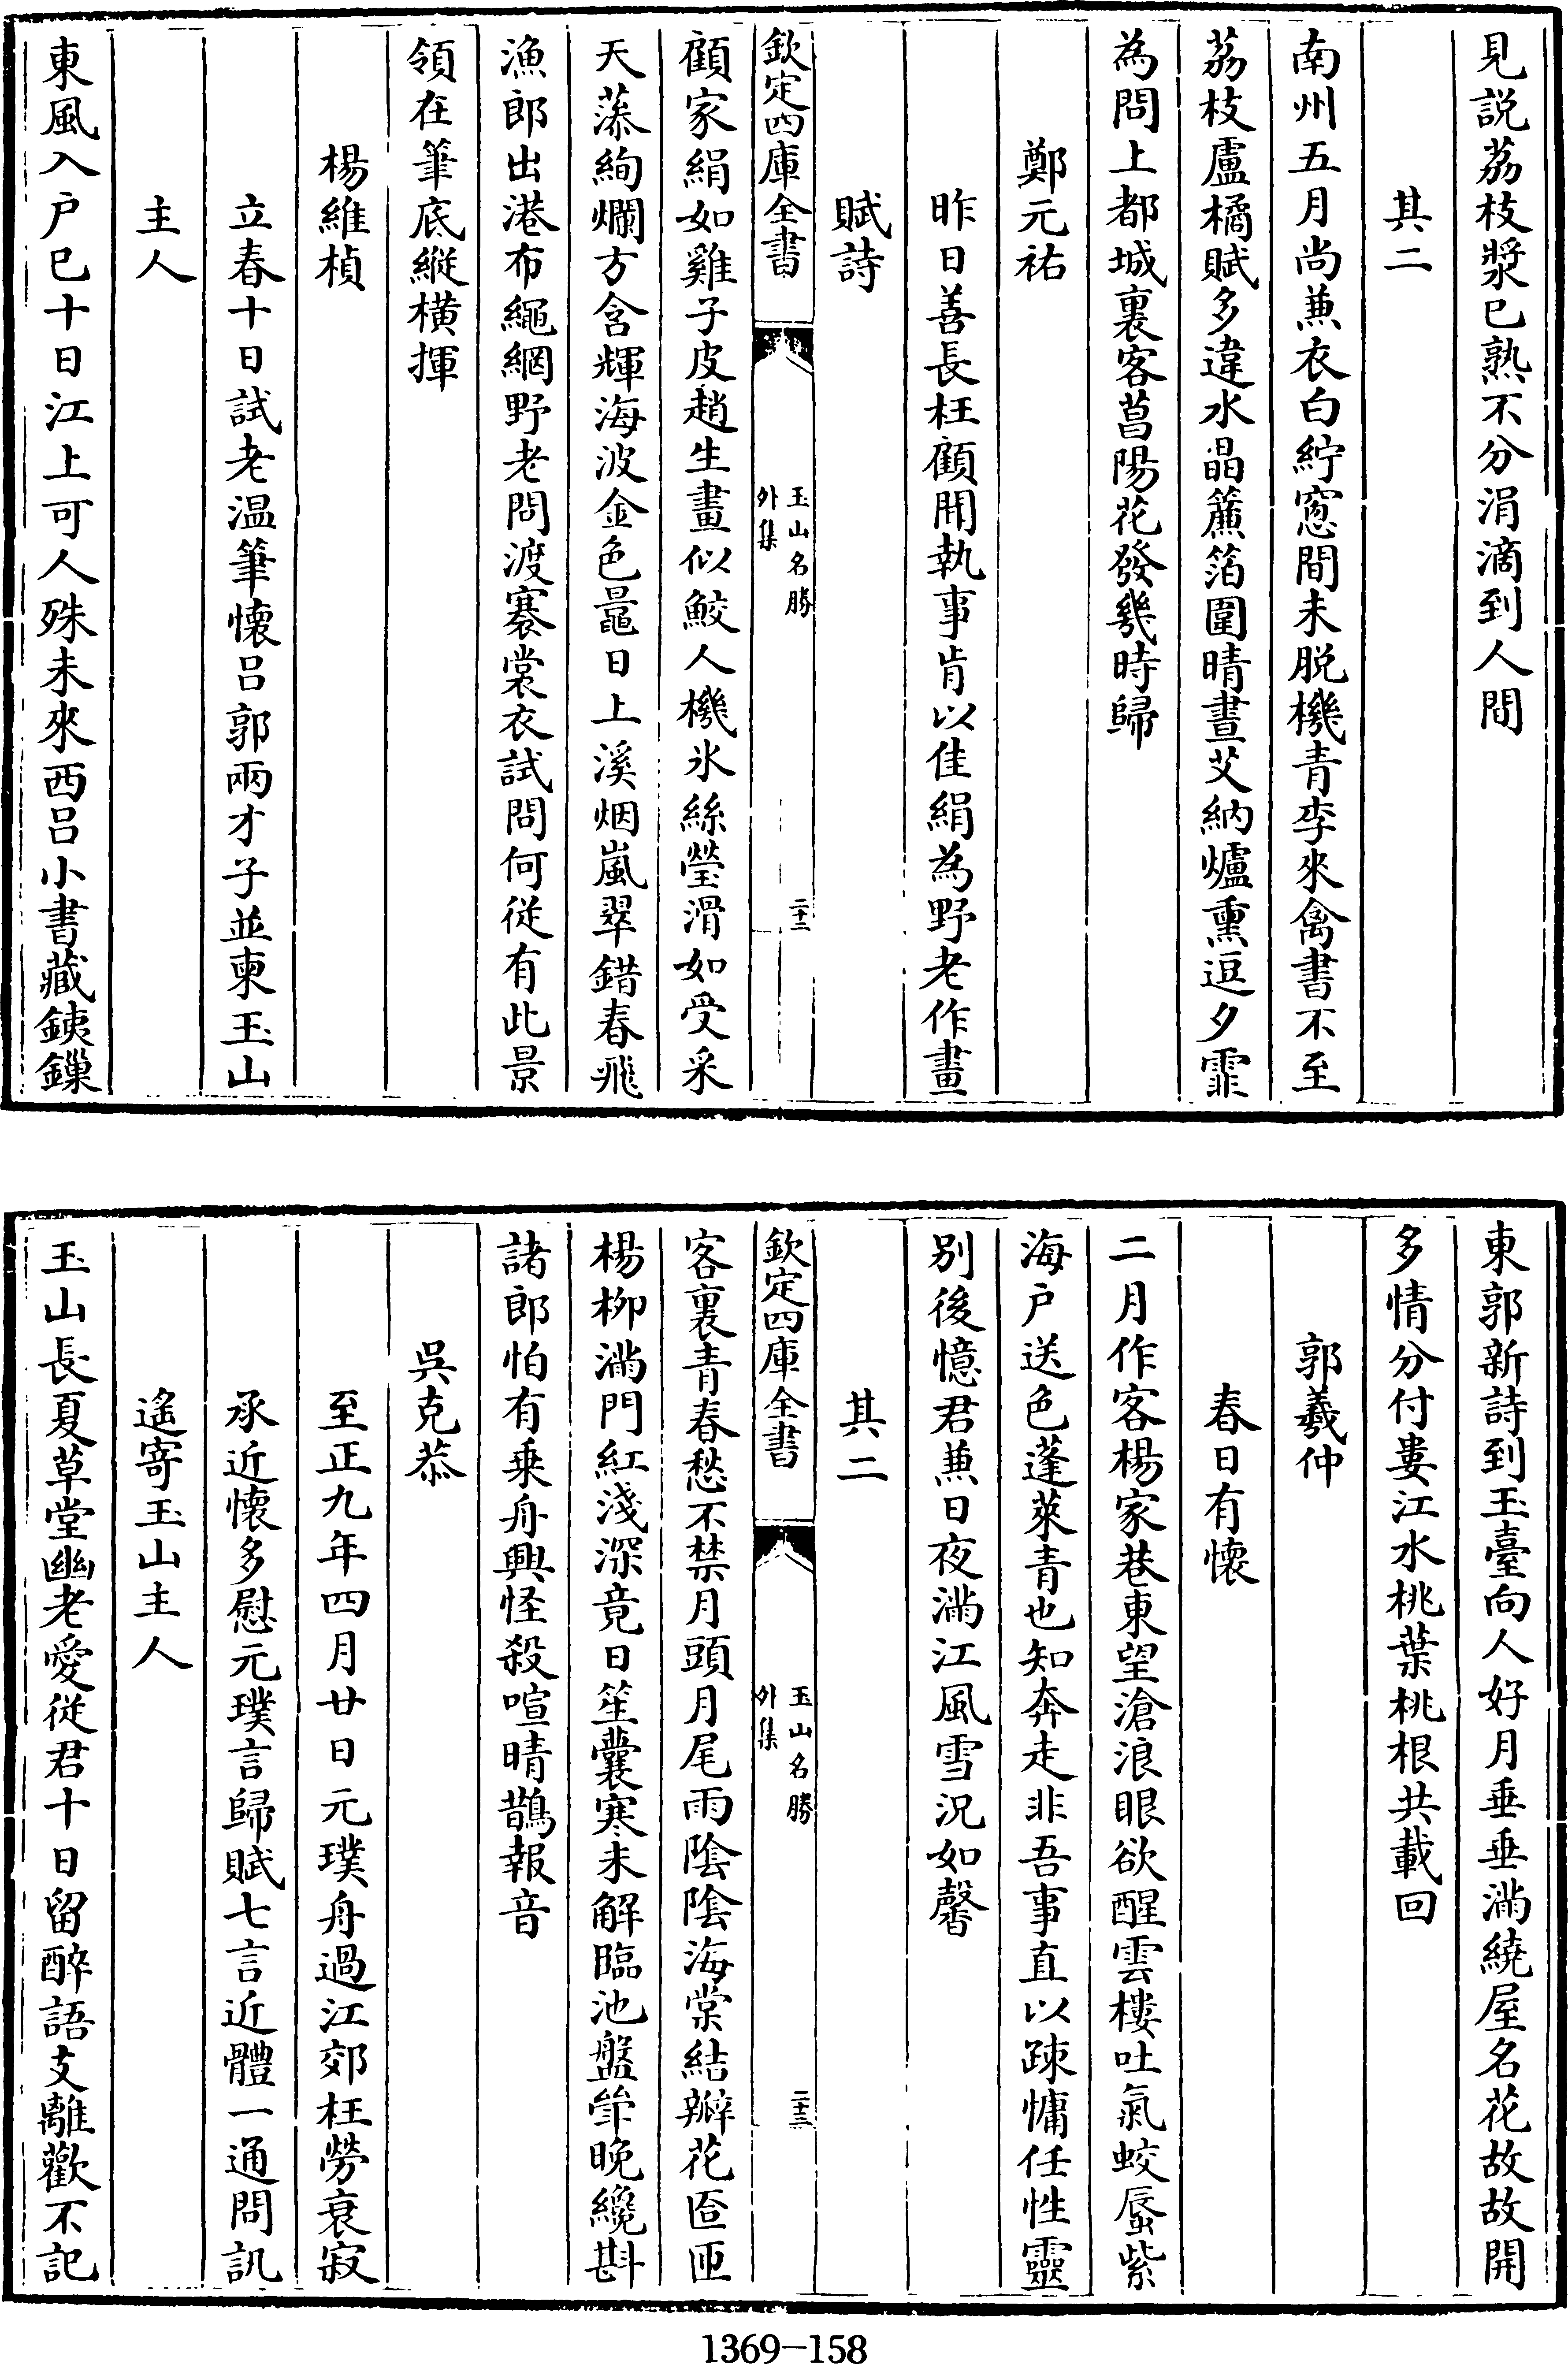 見説荔枝漿已熟不分涓滴到人間
其二
南州五月尚兼衣白紵窓間未脱機青李來禽書不至
荔枝盧橘賦多違水晶簾箔圍晴晝艾納爐熏逗夕霏
為問上都城裏客菖陽花發幾時歸
鄭元祐
昨日善長枉顧開執事肯以佳絹為野老作畫
賦詩
欽定四庫全書
玉山名勝
外集
二十二
顧家絹如雞子皮趙生畫似鮫人機氷絲瑩滑如受采
天藻絢爛方含輝海波金色鼂日上溪烟嵐翠錯春飛
漁郎出港布繩網野老問渡褰裳衣試問何從有此景
領在筆底縱橫揮
楊維楨
立春十日試老温筆懷吕郭兩才子並柬玉山
主人
東風入户已十日江上可人殊未來西吕小書藏銕鏁
東郭新詩到玉臺向人好月垂垂滿繞屋名花故故開
多情分付婁江水桃葉桃根共載回
郭羲仲
春日有懷
二月作客楊家巷東望滄浪眼欲醒雲樓吐氣蛟蜃紫
海户送色蓬萊青也知奔走非吾事直以疎慵任性靈
别後憶君兼日夜滿江風雪況如馨
其二
欽定四庫全書
玉山名勝
外集
二十三
客裏青春愁不禁月頭月尾雨陰陰海棠結瓣花匼匝
楊柳滿門紅淺深竟日笙囊寒未解臨池盤斝晚纔斟
諸郎怕有乗舟興怪殺喧晴鵲報音
吳克恭
至正九年四月廿日元璞舟過江郊枉勞衰寂
承近懷多慰元璞言歸賦七言近體一通問訊
遙寄玉山主人
玉山長夏草堂幽老愛從君十日留醉語支離歡不記
1369-158